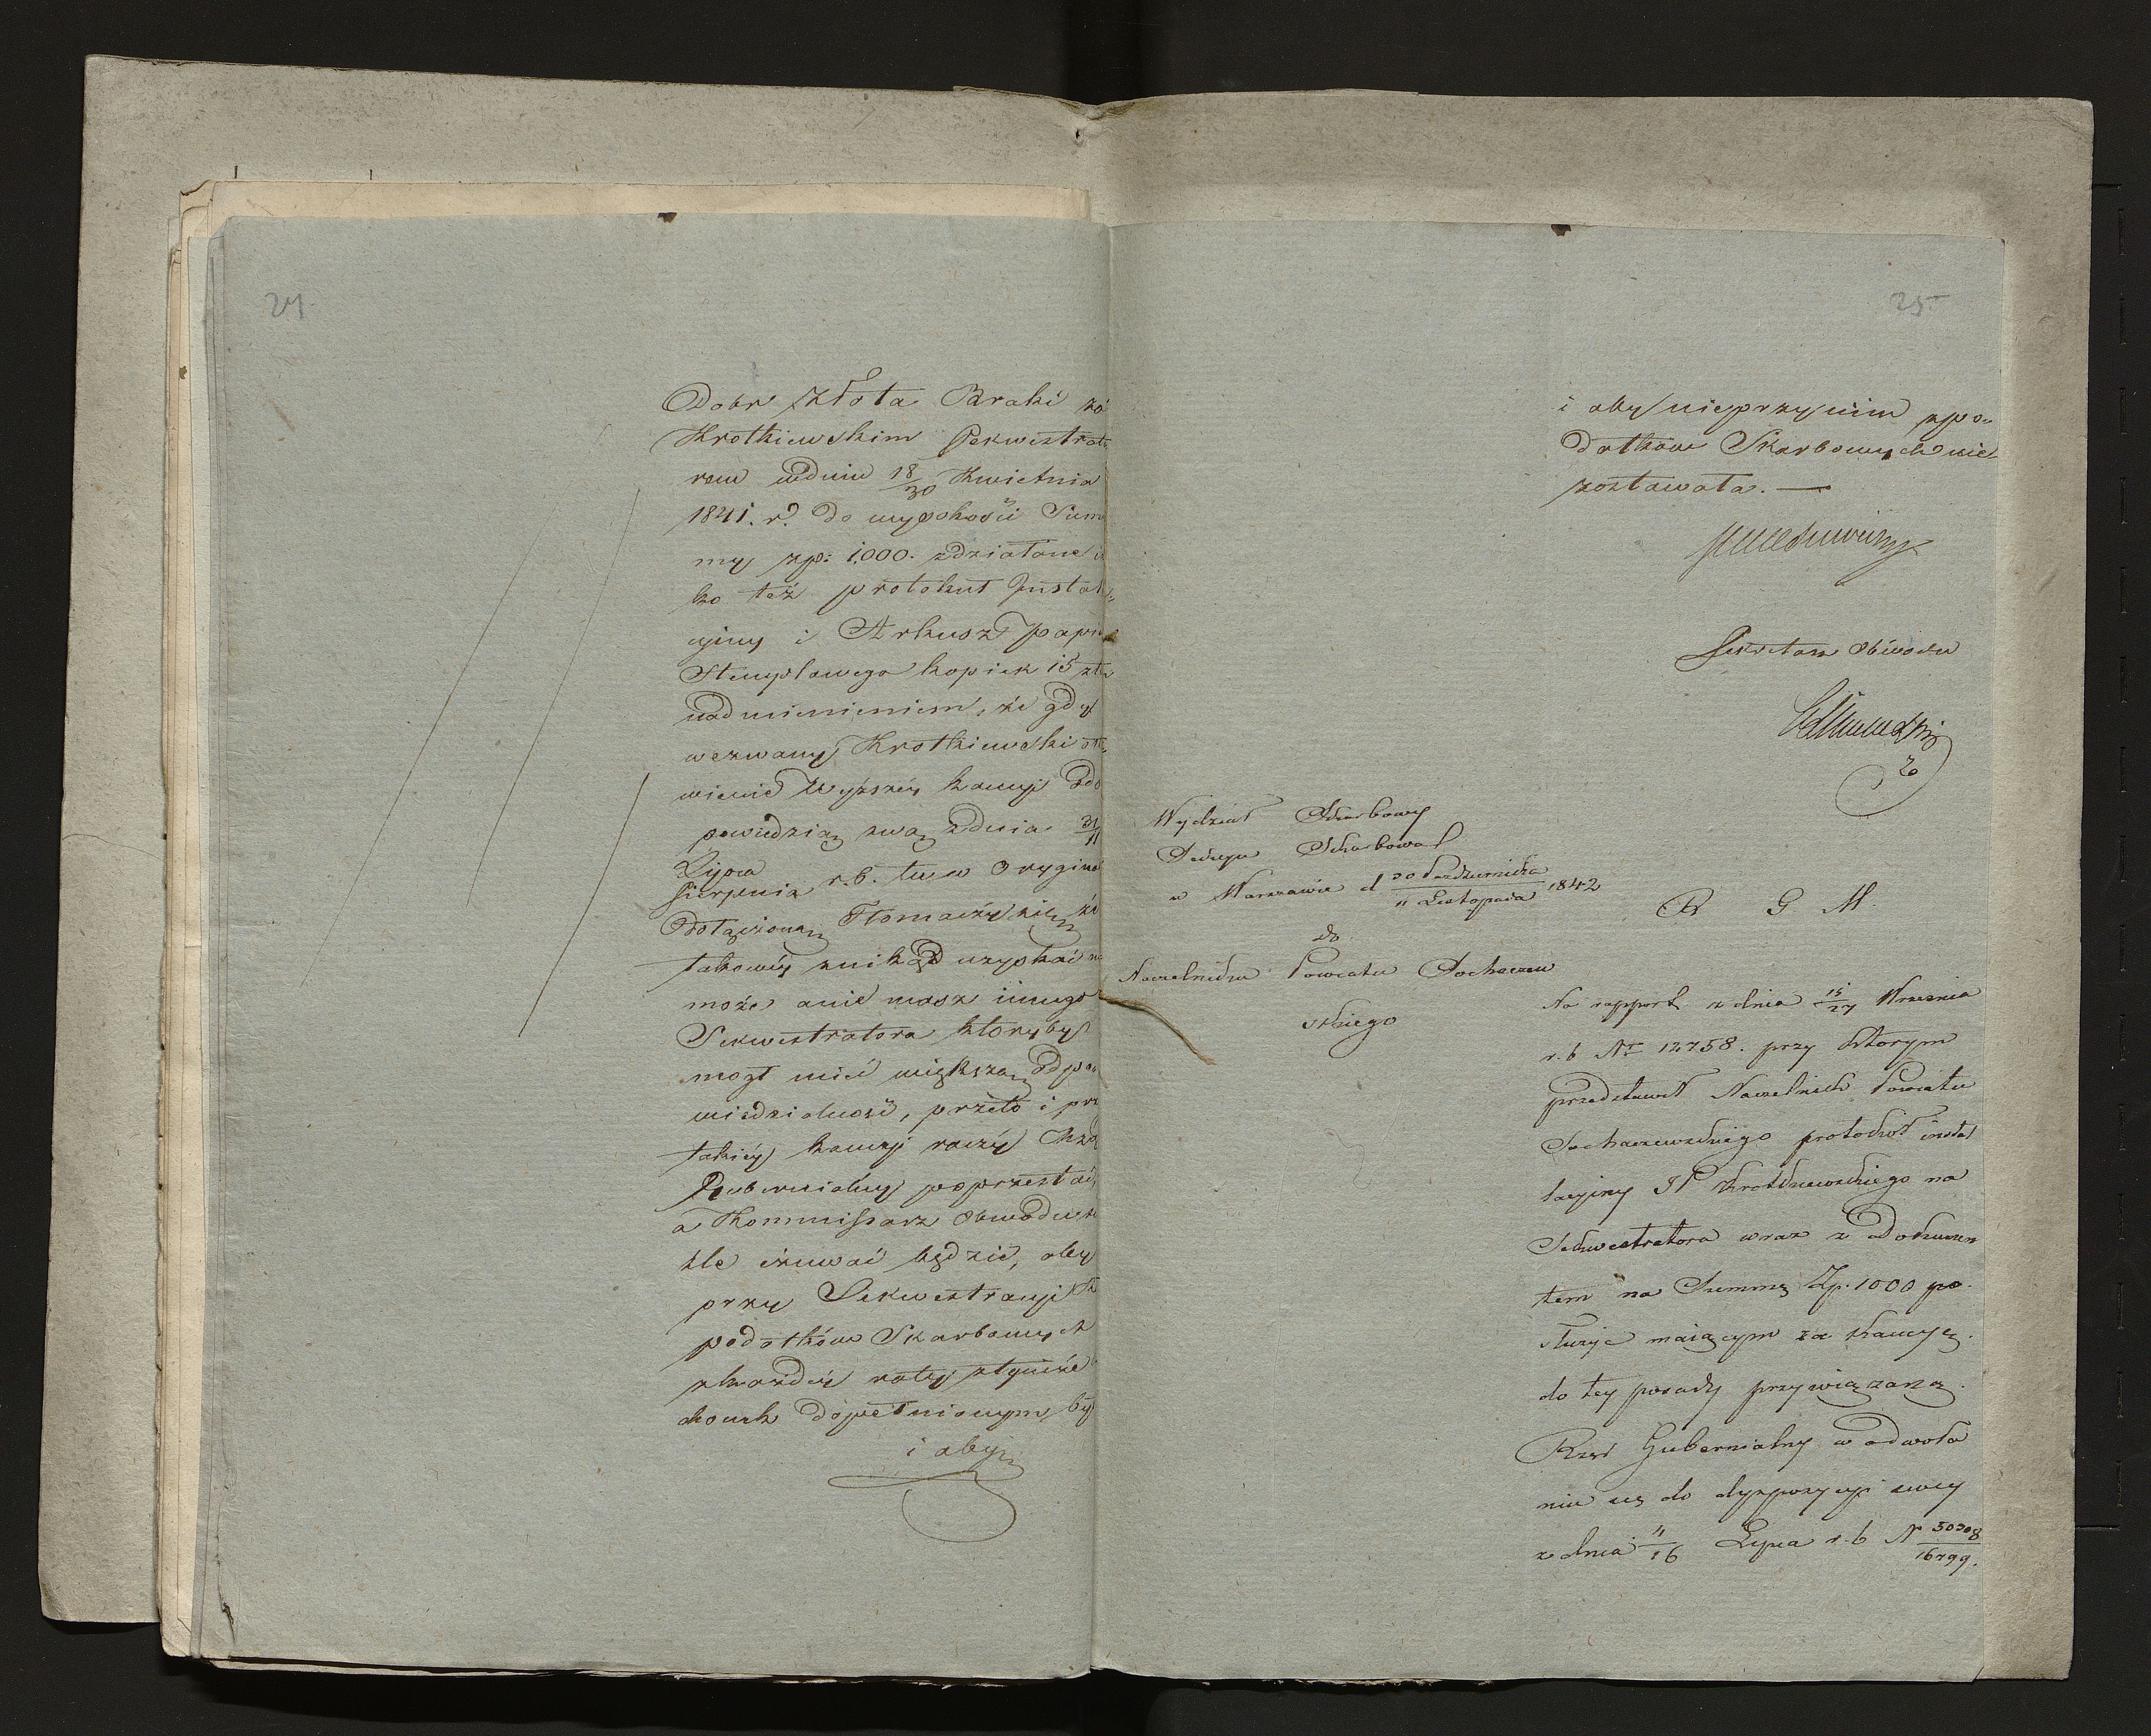 24.
Dobr Złota Braki za
Krotkiewskim Sekwestrato
rem w dniu 18/30 Kwietnia
1841. r. do wysokości Sum
my zp: 1,000. zdziałane
ko też protokuł Instal=
cyiny i Arkusz papie
Stemplowego kopiek 15 z
nadmienieniem, że gdy
wezwany Krotkiewski
wienie wyższéy kaucyi
powiedzią swą z dnia 31/11
Lipca
Sierpnia r. b. tu w Orygina
dołączoną Tłomaczy się że
takowéy znikąd uzyskać nie
może anie masz innego
Sekwestratora któryby
mógł mieć większą odpo=
wiedzialność, przeto i prz
takiéy kaucyi raczy Rząd
Gubernialny poprzestać,
a Kommissarz Obwodu
śle czuwać będzie, aby
przy Sekwestracyi
podatków Skarbowych
z każdéy raty ściśle
dopełnionym był
i aby
25
i aby nieprzy nim z po=
datków Skarbowych nie
zostawała. —
Sekretarz Obwodu
Wydział Skarbowy
Sekcya Skarbowa
w Warszawie d 30 Października / 11 Listopada 1842
R G M.
do
Naczelnika Powiatu Sochaczew
skiego
Na rapport z dnia 15/27 Września
r. b Nr 12758. przy którym
przedstawił Naczelnik Powiatu
Sochaczewskiego protokół instal
lacyiny JP Krotkiewskiego na
Sekwestratora wraz z Dokumen
tem na Summę Zp. 1000 po
służyć maiącym za kaucyą
do tey posady przywiązaną.
Rząd Gubernialny w odwoła
niu się do dyspozycyi swey
z dnia 4/16 Lipca r. b N 50308/16799.